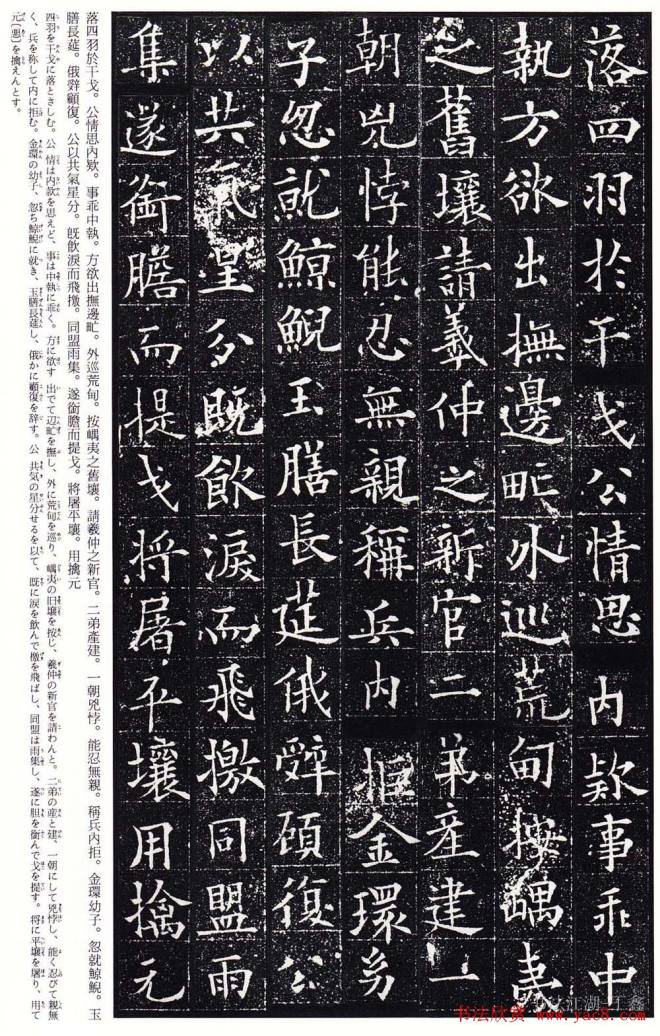 落四羽於干戈公情思内欵事乖中
執方欲出撫邊甿外巡荒甸按嵎夷
之舊壤請羲仲之新官二弟產建一
朝兇悖能忍無親稱兵内拒金環幼
子忽就鯨鯢玉膳長筵俄辤顧復公
以共氣星分既飲淚而飛檄同盟雨
集遂銜膽而提戈將屠平壤用擒元
落四羽於干戈。公情思內欵。事乖中執。方欲出撫邊甿。外巡荒甸。按嵎夷之舊壤。請羲仲之新官。二弟產建。一朝兇悖。能忍無親。稱兵內拒。金環幼子。忽就鯨鯢。玉
膳長筵。俄辤顧復。公以共氣星分。既飲淚而飛檄。同盟雨集。遂銜膽而提戈。將屠平壤。用擒元
四羽を干戈に落ときしむ。公 情は内欵を思えど、事は中執に乖く。方に欲す 出でて辺甿を撫し、外に荒甸を巡り、嵎夷の旧壤を按じ、羲仲の新官を請わんと。二弟の産と建、一朝にして兇悖し、能く忍びて親無
く、兵を称して内に拒む。金環の幼子、忽ち鯨鯢に就き、玉膳長筵し、俄かに顧復を辞す。公 共気の星分せるを以て、既に涙を飲んで檄を飛ばし、同盟は雨集し、遂に胆を銜んで戈を提す。将に平壤を屠り、用て
元〔悪〕を擒えんとす。
书法欣赏 www.yac8.com